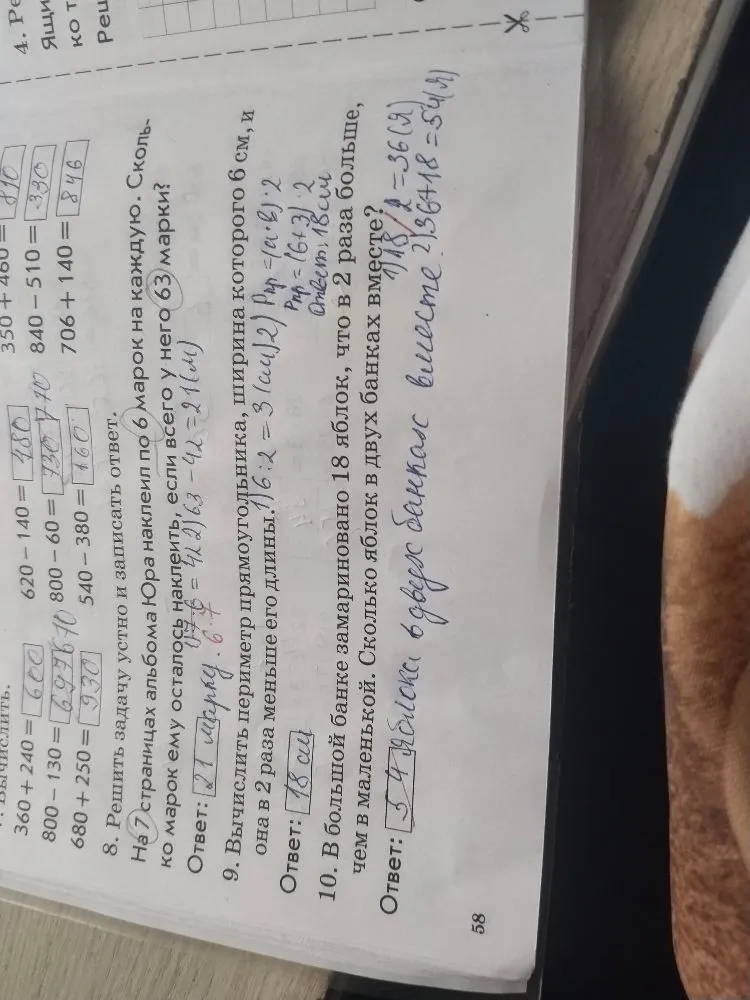 4. Ре
Ящи
ко т
Реш
числить.
360 + 240 = 600
620 – 140 = 480
350 + 460 = 810
800 – 130 = 670
800 – 60 = 730 740
840 – 510 = 330
680 + 250 = 930
540 – 380 = 160
706 + 140 = 846
8. Решить задачу устно и записать ответ.
На 7 страницах альбома Юра наклеил по 6 марок на каждую. Сколь-
ко марок ему осталось наклеить, если всего у него 63 марки?
1) 7·6 = 42 2) 63 – 42 = 21 (м)
6·7
Ответ: 21 марку.
9. Вычислить периметр прямоугольника, ширина которого 6 см, и
она в 2 раза меньше его длины.
1) 6 : 2 = 3 (см) 2) Pпр = (а·в)·2
Pпр = (6+3)·2
Ответ: 18 см
Ответ: 18 см
10. В большой банке замариновано 18 яблок, что в 2 раза больше,
чем в маленькой. Сколько яблок в двух банках вместе?
1) 18 / 2 = 36 (Я)
2) 36 + 18 = 54 (Я)
Ответ: 54 яблока в двух банках вместе.
58